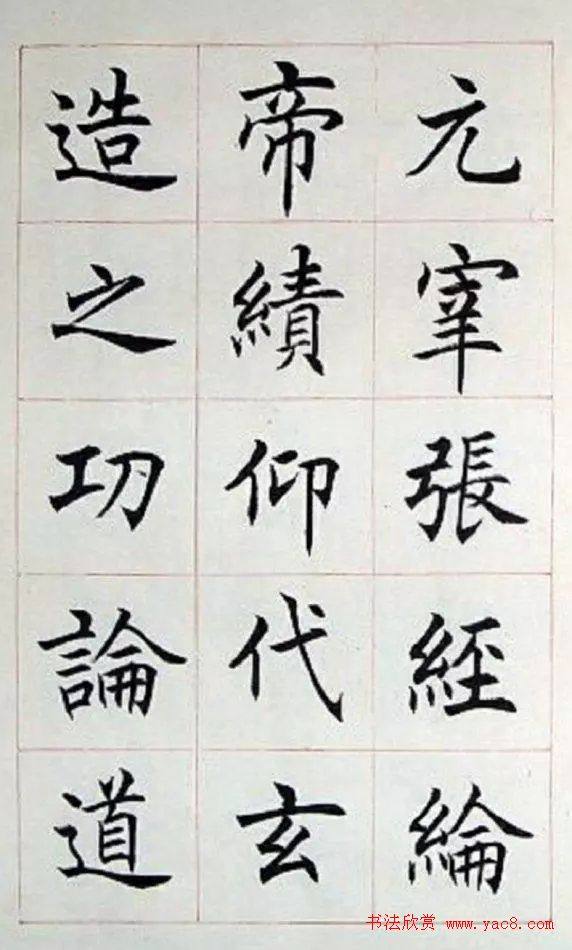 元宰張經綸
帝績仰代玄
造之功論道
书法欣赏 www.yac8.com